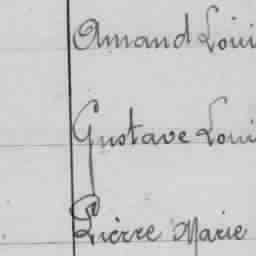 Amand Loui
Gustave Loui
Pierre Marie